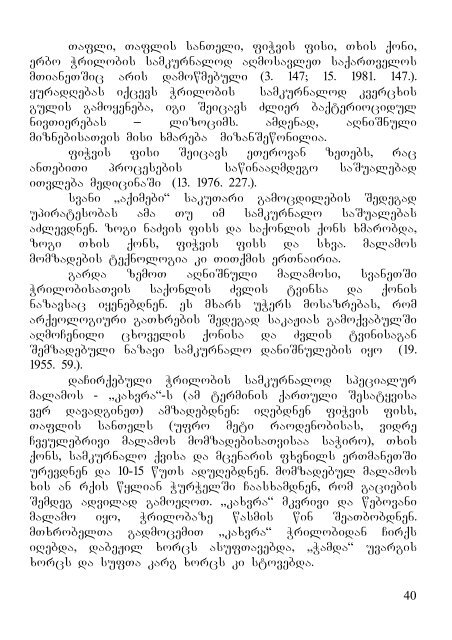 თაფლი, თაფლის სანთელი, ფიჭვის ფისი, თხის ქონი,
ერბო ჭრილობის სამკურნალოდ აღმოსავლეთ საქართველოს
მთიანეთშიც არის დამოწმებული (3. 147; 15. 1981. 147.).
ყურადღებას იქცევს ჭრილობის სამკურნალოდ კვერცხის
გულის გამოყენება, იგი შეიცავს ძლიერ ბაქტერიოციდულ
ნივთიერებას – ლიზოციმს. ამდენად, აღნიშნული
მიზნებისათვის მისი ხმარება მიზანშეწონილია.
ფიჭვის ფისი შეიცავს ეთეროვან ზეთებს, რაც
ანთებითი პროცესების საწინააღმდეგო საშუალებად
ითვლება მედიცინაში (13. 1976. 227.).
სვანი „აქიმები“ საკუთარი გამოცდილების შედეგად
უპირატესობას ამა თუ იმ სამკურნალო საშუალებას
აძლევდნენ. ზოგი ნაძვის ფისს და საქონლის ქონს ხმარობდა,
ზოგი თხის ქონს, ფიჭვის ფისს და სხვა. მალამოს
მომზადების ტექნოლოგია კი თითქმის ერთნაირია.
გარდა ზემოთ აღნიშნული მალამოსი, სვანეთში
ჭრილობისათვის საქონლის ძვლის ტვინსა და ქონის
ნაზავსაც იყენებდნენ. ეს მხარს უჭერს მოსაზრებას, რომ
არქეოლოგიური გათხრების შედეგად საკაჟიას გამოქვაბულში
აღმოჩენილი ცხოველის ქონისა და ძვლის ტვინისაგან
შემზადებული ნაზავი სამკურნალო დანიშნულების იყო (19.
1955. 59.).
დაჩირქებული ჭრილობის სამკურნალოდ სპეციალურ
მალამოს - „კახვრა“-ს (ამ ტერმინის ქართული შესატყვისა
ვერ დავადგინეთ) ამზადებდნენ: იღებდნენ ფიჭვის ფისს,
თაფლის სანთელს (უფრო მეტი რაოდენობისას, ვიდრე
ჩვეულებრივი მალამოს მომზადებისათვისაა საჭირო), თხის
ქონს, სამკურნალო ქვისა და მცენარის ფხვნილს ერთმანეთში
ურევდნენ და 10-15 წუთს ადუღებდნენ. მომზადებულ მალამოს
ხის ან რქის წყლიან ჭურჭელში ჩაასხამდნენ, რომ გაციების
შემდეგ ადვილად გამოეღოთ. „კახვრა“ მკვრივი და წებოვანი
მალამო იყო, ჭრილობაზე წასმის წინ შეათბობდნენ.
მთხრობელთა გადმოცემით „კახვრა“ ჭრილობიდან ჩირქს
იღებდა, დაბეჟილ ხორცს ასუფთავებდა, „ჭამდა“ უვარგის
ხორცს და სუფთა კარგ ხორცს კი სტოვებდა.
40